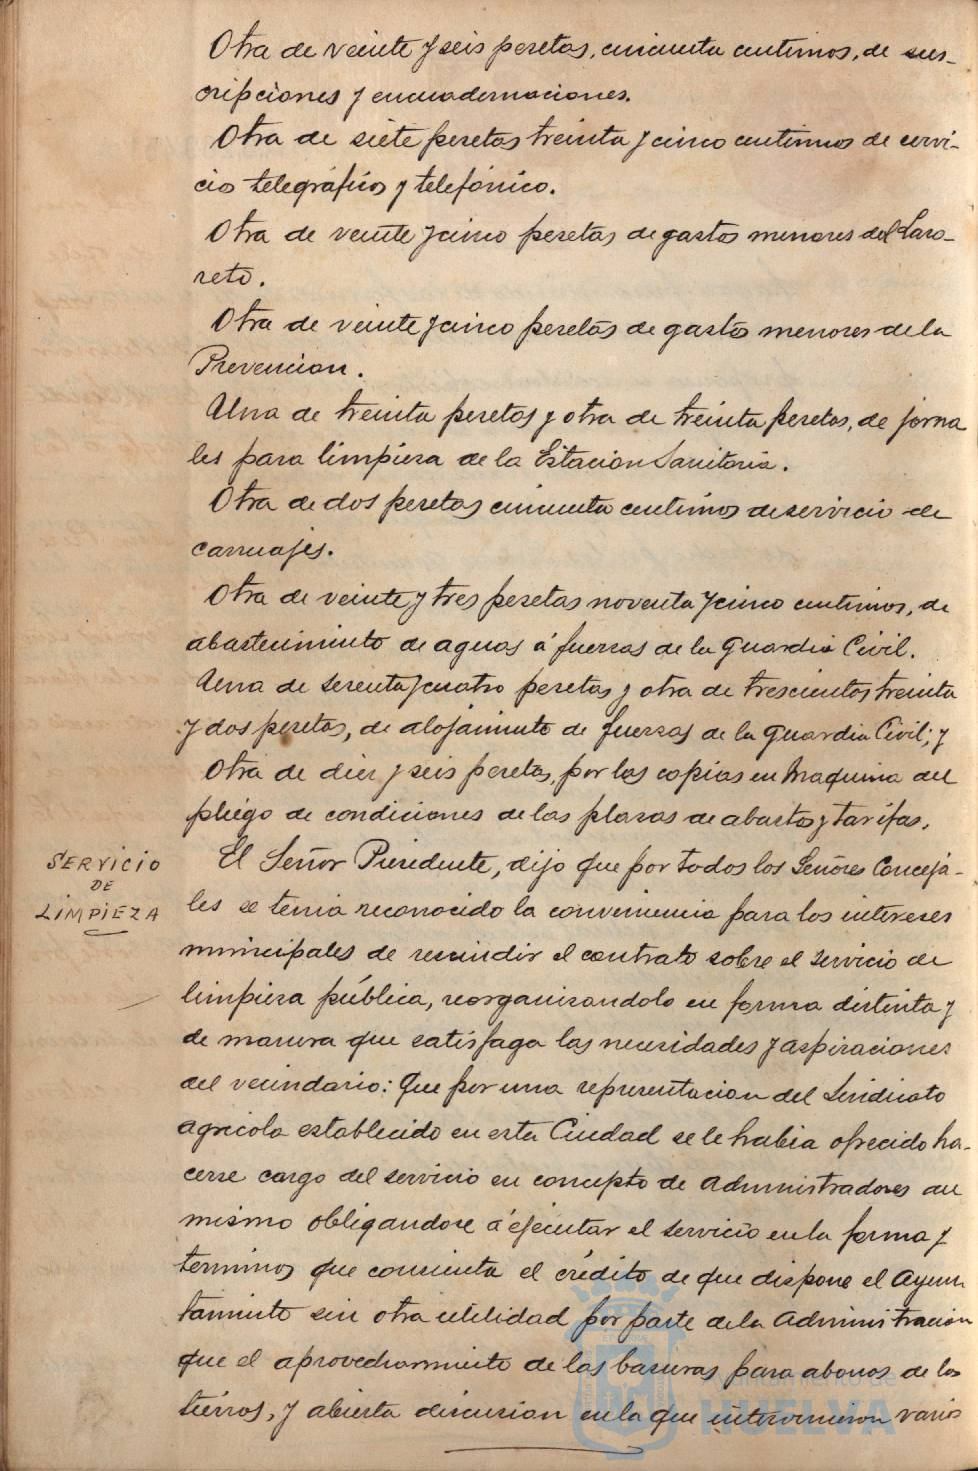 Otra de veinte y seis pesetas, cincuenta centimos, de sus-
cripciones y encuadernaciones.
Otra de siete pesetas treinta y cinco centimos de servi-
cio telegráfico y telefónico.
Otra de veinte y cinco pesetas de gastos menores del Laza-
reto.
Otra de veinte y cinco pesetas de gastos menores de la
Prevencion.
Una de treinta pesetas y otra de treinta pesetas, de jorna
les para limpieza de la Estacion Sanitaria.
Otra de dos pesetas cincuenta centimos de servicio de
carruajes.
Otra de veinte y tres pesetas noventa y cinco centimos, de
abastecimiento de aguas á fuerzas de la Guardia Civil.
Una de sesenta y cuatro pesetas y otra de trescientos treinta
y dos pesetas, de alojamiento de fuerzas de la Guardia Civil; y
Otra de diez y seis pesetas, por las copias en maquina del
pliego de condiciones de las plazas de abastos y tarifas.
SERVICIO
DE
LIMPIEZA
El Señor Presidente, dijo que por todos los Señores Conceja-
les se tenia reconocido la conveniencia para los intereses
municipales de rescindir el contrato sobre el servicio de
limpieza pública, reorganizandolo en forma distinta y
de manera que satisfaga las necesidades y aspiraciones
del vecindario: Que por una representacion del Sindicato
agricola establecido en esta Ciudad se le habia ofrecido ha-
cerse cargo del servicio en concepto de Administradores del
mismo obligandose á ejecutar el servicio en la forma y
terminos que consienta el crédito de que dispone el Ayun
tamiento sin otra utilidad por parte de la Administracion
que el aprovechamiento de las basuras para abonos de las
tierras, y abierta discusion en la que intervinieron varios
Ayuntamiento de
HUELVA